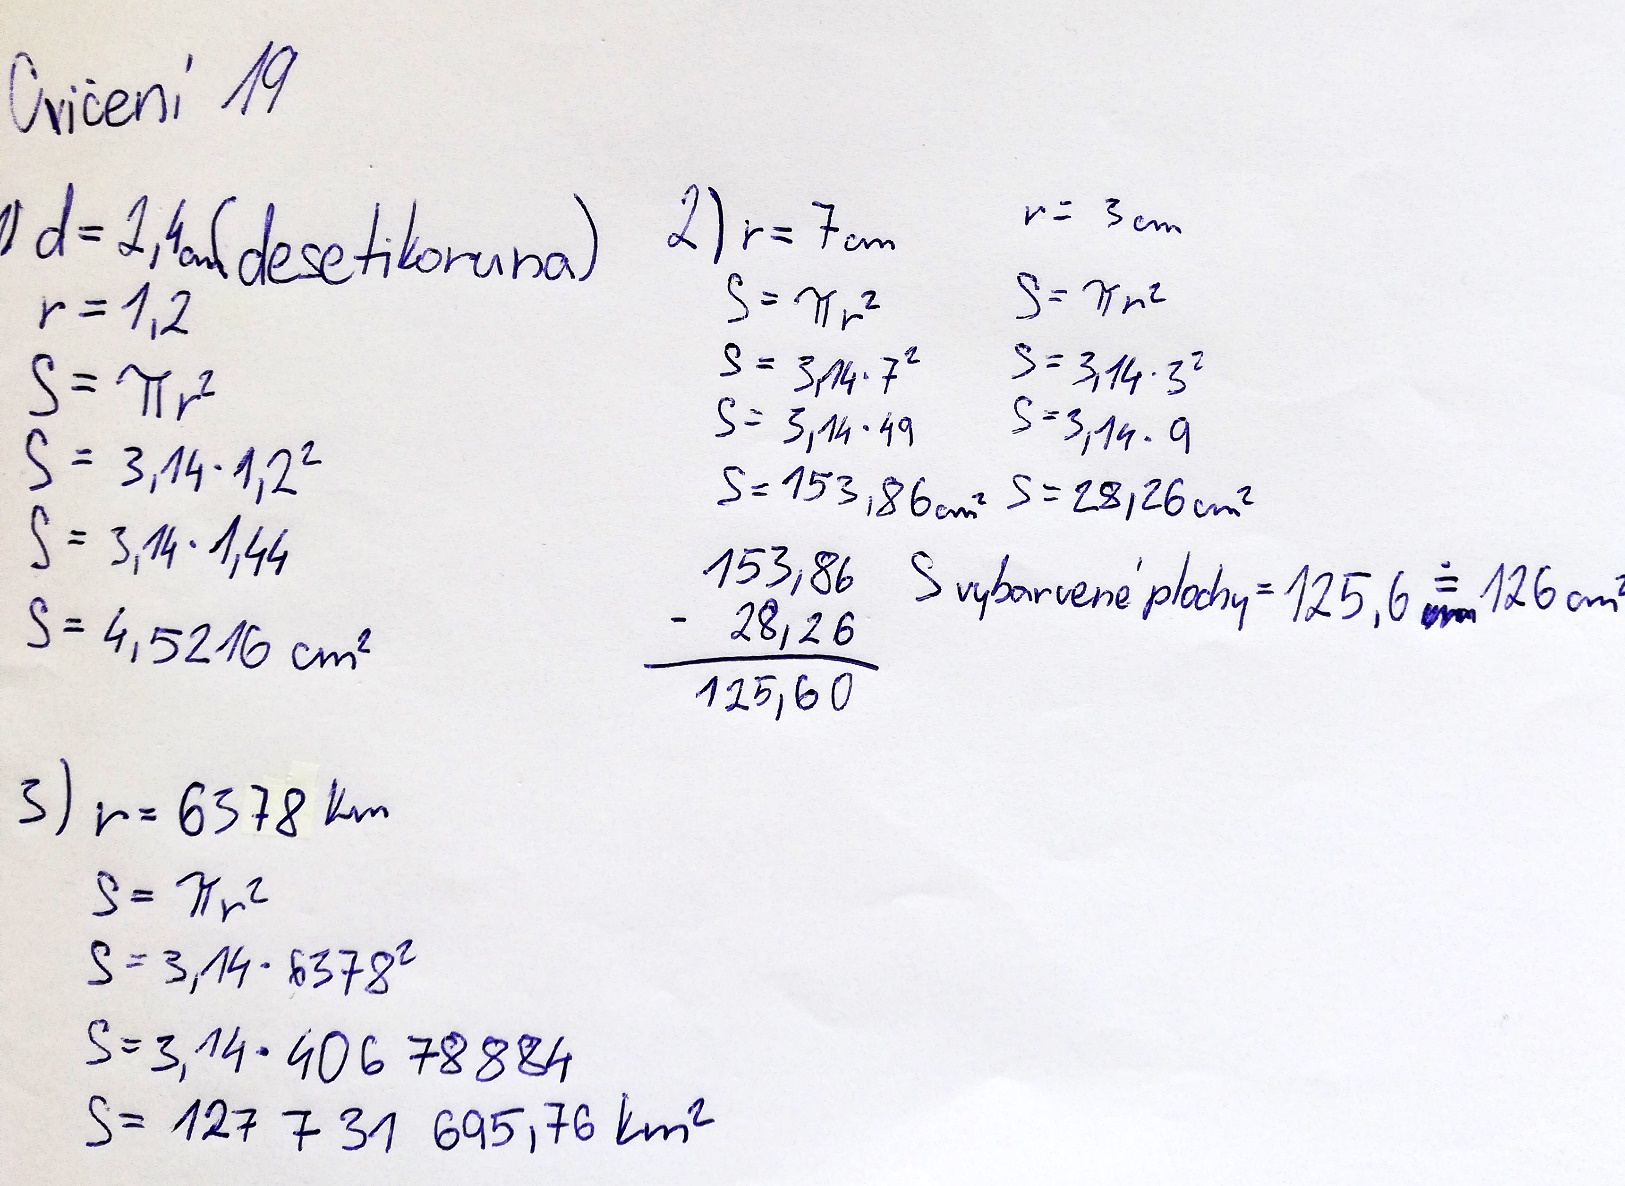 Cvičení 19
1) d = 2,4cm (desetikoruna)
r = 1,2
S = πr²
S = 3,14 · 1,2²
S = 3,14 · 1,44
S = 4,5216 cm²
2) r = 7cm
S = πr²
S = 3,14 · 7²
S = 3,14 · 49
S = 153,86cm²
r = 3cm
S = πr²
S = 3,14 · 3²
S = 3,14 · 9
S = 28,26cm²
153,86
- 28,26
125,60
S vybarvené plochy = 125,6 ≐ 126 cm²
3) r = 6378 km
S = πr²
S = 3,14 · 6378²
S = 3,14 · 406 78884
S = 127 731 695,76 km²